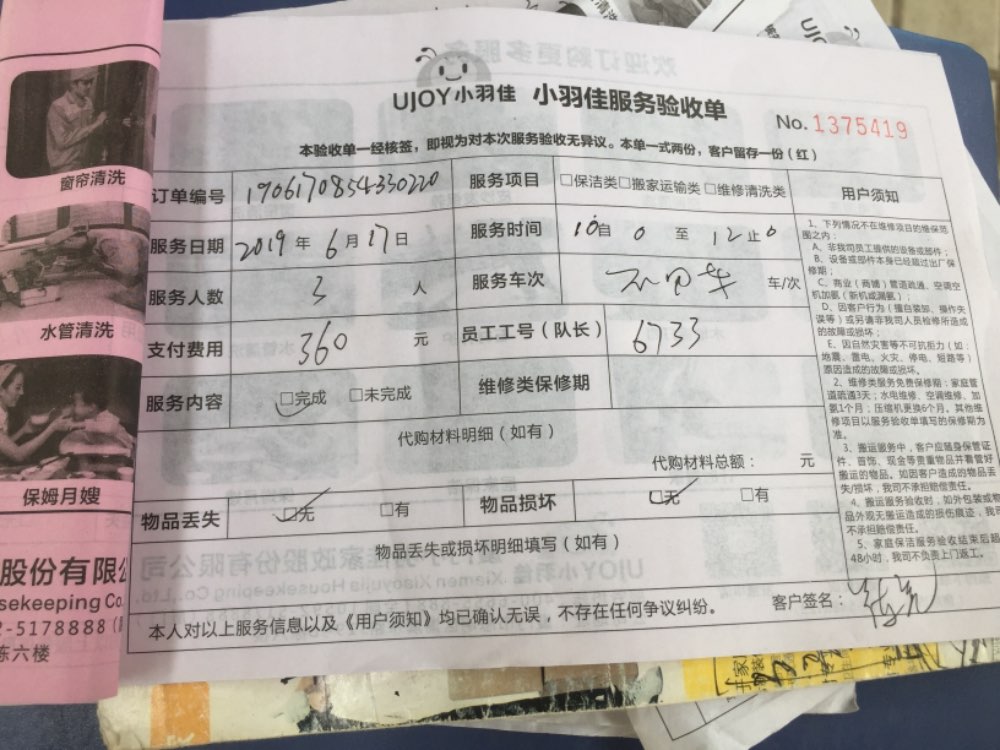 UJOY小羽佳 小羽佳服务验收单
No. 1375419
本验收单一经核签，即视为对本次服务验收无异议。本单一式两份，客户留存一份（红）
订单编号 1906170854330220 服务项目 □保洁类□搬家运输类□维修清洗类 用户须知
服务日期 2019年6月17日 服务时间 10自0至12止0
服务人数 3 人 服务车次 车/次
支付费用 360 元 员工工号（队长） 6733
服务内容 □完成 □未完成 维修类保修期
代购材料明细（如有）
代购材料总额： 元
物品丢失 □无 □有 物品损坏 □无 □有
物品丢失或损坏明细填写（如有）
本人对以上服务信息以及《用户须知》均已确认无误，不存在任何争议纠纷。
客户签名：
1、下列情况不在维修项目的维保范
围之内：
A、非我司员工提供的设备或部件；
B、设备或部件本身已经超过出厂保
修期；
C、商业（商铺）管道疏通、空调空
机加氨（新机或漏氨）；
D、因客户行为（擅自装卸、操作失
误等）或另请非我司人员检修所造成
的故障或损坏；
E、因自然灾害等不可抗拒力（如：
地震、雷电、火灾、停电、短路等）
原因造成的故障或损坏。
2、维修类服务免费保修期：家庭管
道疏通3天；水电维修、空调维修、加
氨1个月；压缩机更换6个月。其他维
修项目以服务验收单填写的保修期为
准。
3、搬运服务中，客户应随身保管证
件、首饰、现金等贵重物品并看管好
搬运的物品。如因客户造成的物品丢
失/损坏，我司不承担赔偿责任。
4、搬运服务验收时，如外包装或物
品外观无搬运造成的损伤痕迹，我司
不承担赔偿责任。
5、家庭保洁服务验收结束后超
48小时，我司不负责上门返工。
窗帘清洗
水管清洗
保姆月嫂
股份有限公
sekeeping Co.
2-5178888
东六楼